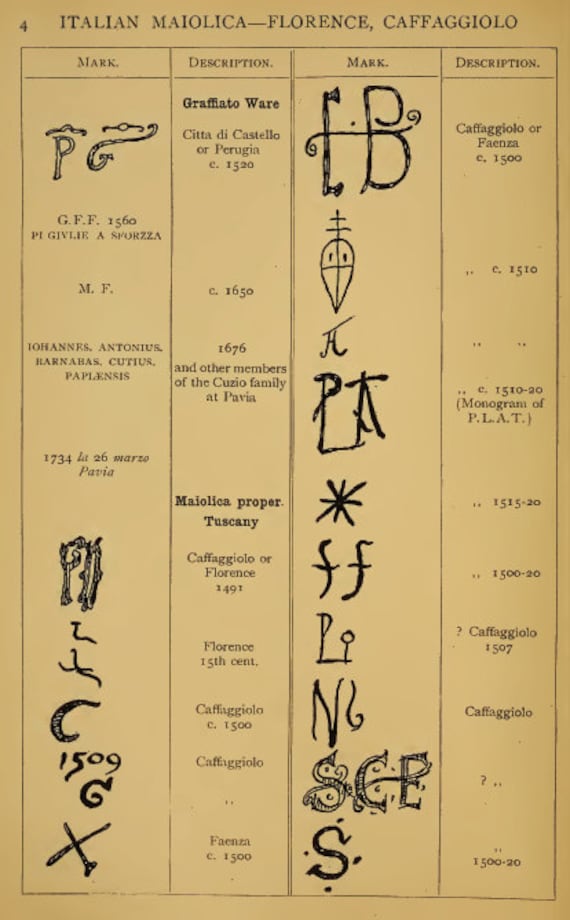 4 ITALIAN MAIOLICA—FLORENCE, CAFFAGGIOLO
MARK.
DESCRIPTION.
MARK.
DESCRIPTION.
Graffiato Ware
P G
Citta di Castello
or Perugia
c. 1520
G.F.F. 1560
PI GIVLIE A SFORZZA
M. F.
c. 1650
IOHANNES. ANTONIUS.
BARNABAS. CUTIUS.
PAPLÆNSIS
1676
and other members
of the Cuzio family
at Pavia
1734 la 26 marzo
Pavia
Maiolica proper.
Tuscany
Caffaggiolo or
Florence
1491
Florence
15th cent.
C
Caffaggiolo
c. 1500
1509
G
Caffaggiolo
,,
X
Faenza
c. 1500
Caffaggiolo or
Faenza
c. 1500
,, c. 1510
,, ,,
,, c. 1510-20
(Monogram of
P.L.A.T.)
,, 1515-20
ff
,, 1500-20
Lo
? Caffaggiolo
1507
Caffaggiolo
? ,,
S
,,
1500-20